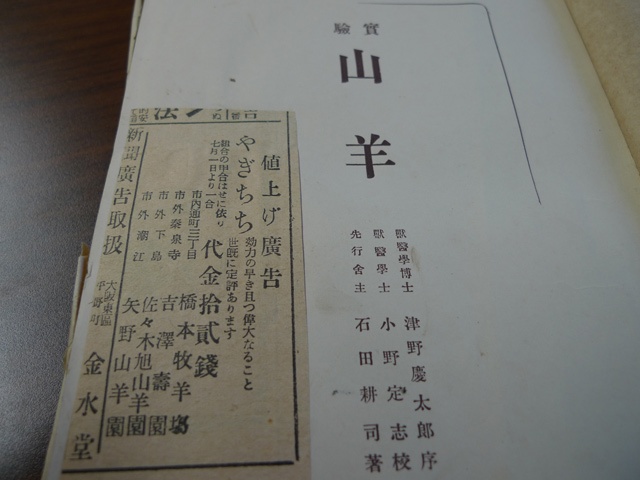 實驗
山羊
獸醫學博士 津野慶太郎序
獸醫學士 小野定志校
先行舍主 石田耕司著
値上げ廣告
やぎちち
効力の早き且つ偉大なること
世既に定評あります
組合の申合はせに依り
七月一日より一合
代金拾貳錢
市内通町三丁目 橋本牧羊場
市外秦泉寺 吉澤壽園
市外下島 佐々木旭山羊園
市外潮江 矢野山羊園
新聞廣告取扱
大阪東區
金水堂